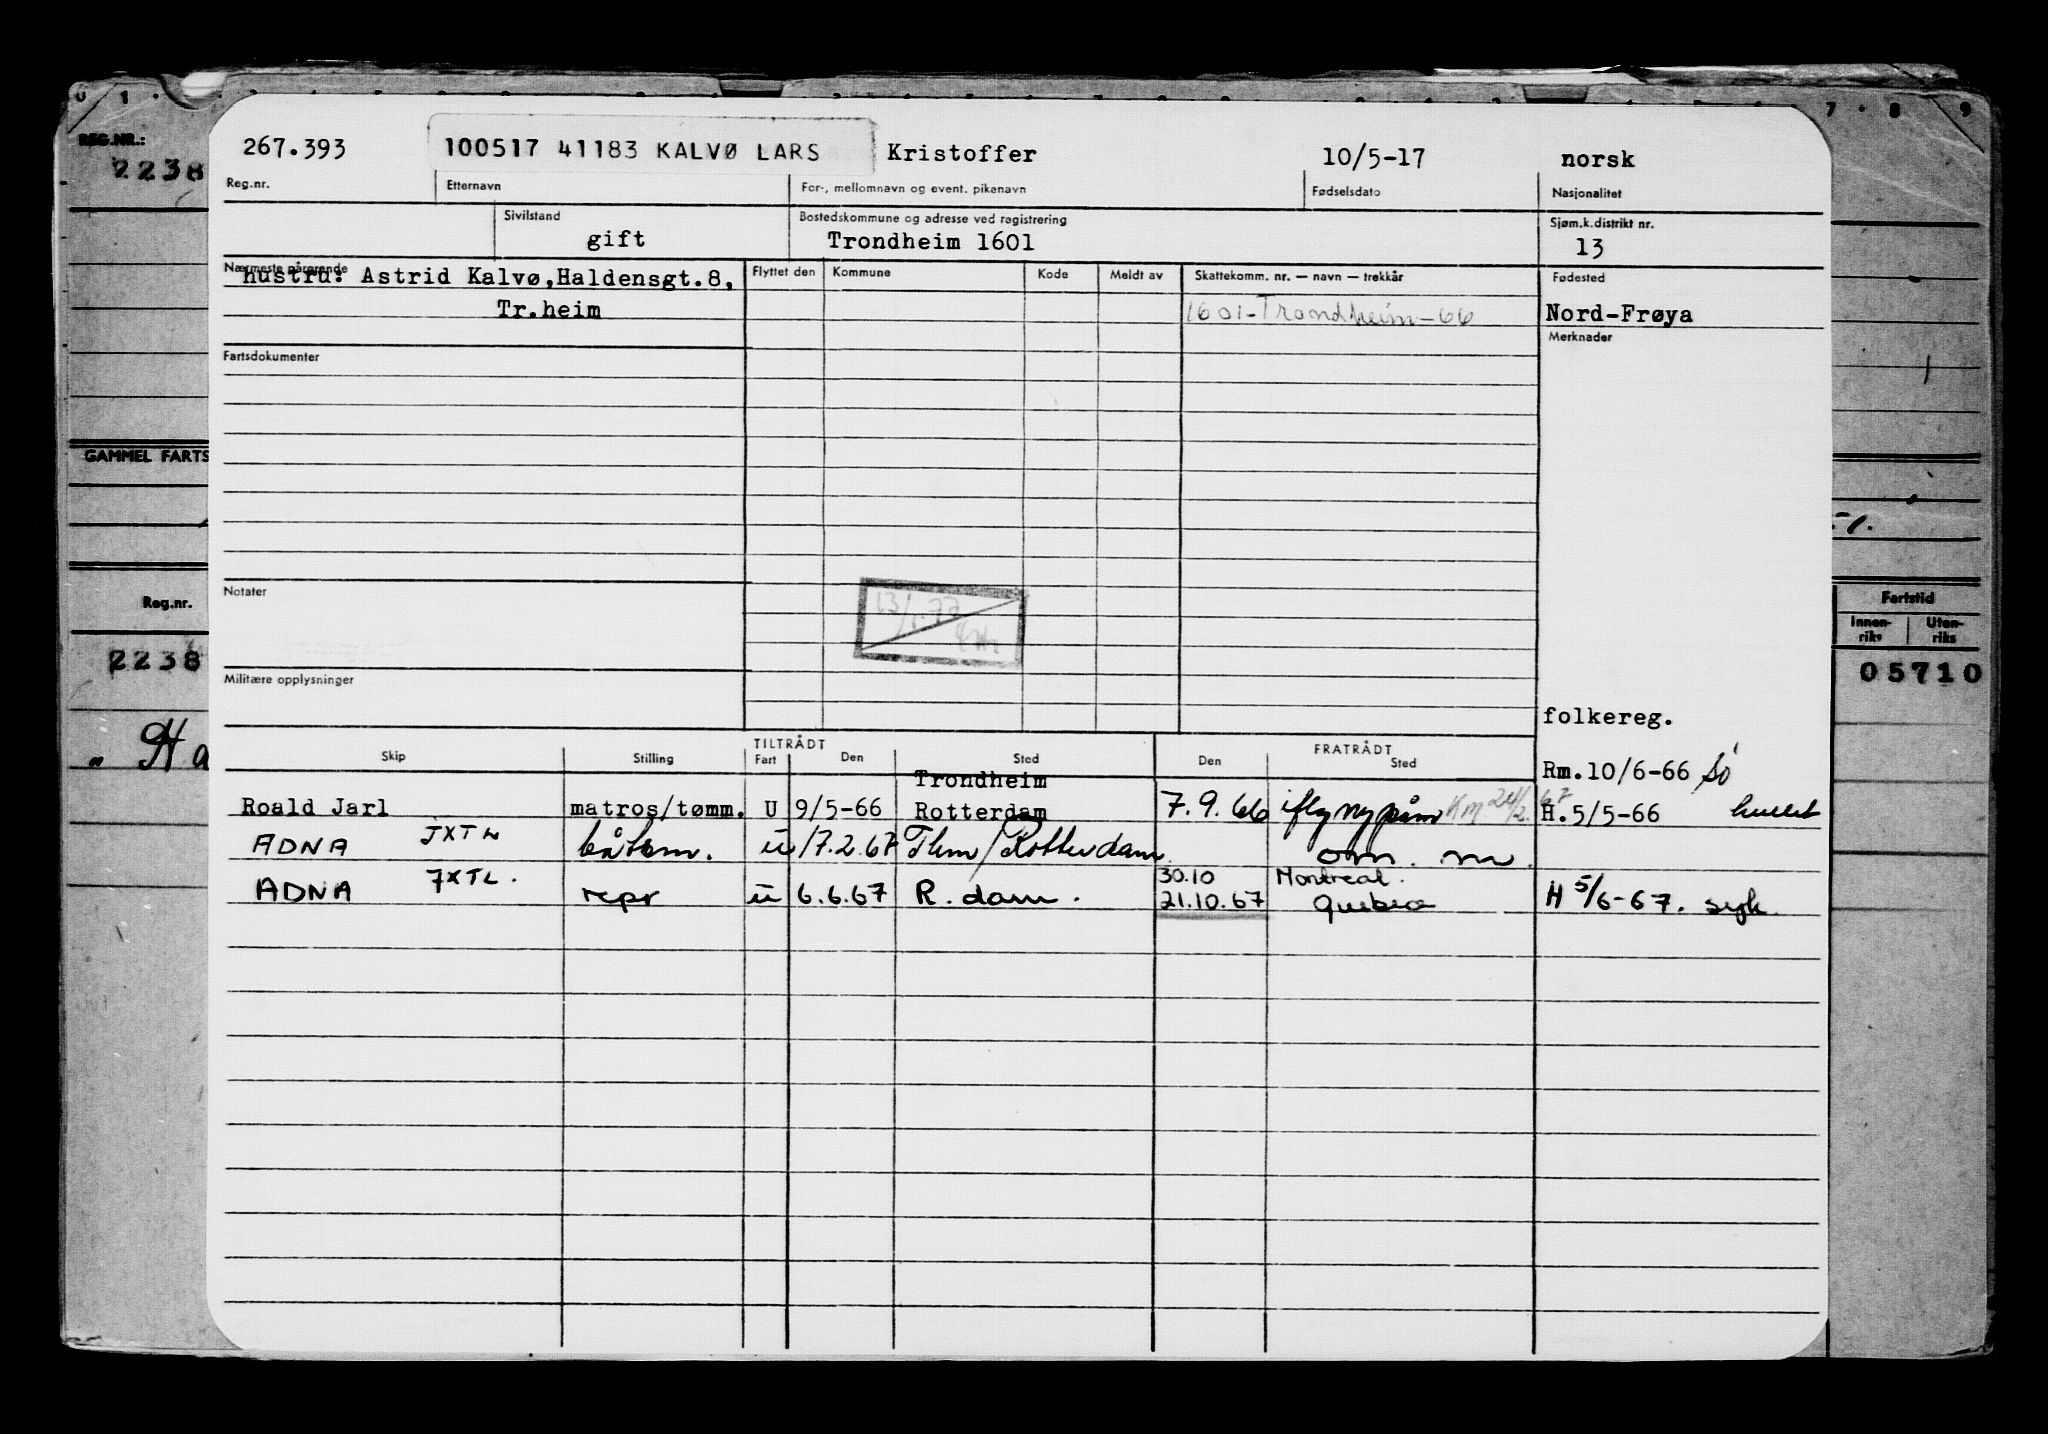 REG.NR.:
2238
267.393 100517 41183 KALVØ LARS Kristoffer 10/5-17 norsk
Reg.nr. Etternavn For-, mellomnavn og event. pikenavn Fødselsdato Nasjonalitet
Sivilstand Bostedskommune og adresse ved registrering Sjøm.k.distrikt nr.
gift Trondheim 1601 13
Nærmeste pårørende Flyttet den Kommune Kode Meldt av Skattekomm. nr. — navn — trekkår Fødested
hustru: Astrid Kalvø,Haldensgt.8,
Tr.heim 1601-Trondheim-66 Nord-Frøya
Fartsdokumenter Merknader
GAMMEL FARTS
Notater
Reg.nr. Fartstid
Innen-riks Uten-riks
2238 05710
Militære opplysninger
folkereg.
TILTRÅDT FRATRÅDT
Skip Stilling Fart Den Sted Den Sted
Rm.10/6-66
Trondheim
Roald Jarl matros/tømm. U 9/5-66 Rotterdam 7.9.66 H.5/5-66
ADNA JXTL båtsm. u 17.2.67 Thm/Rotterdam
30.10 Montreal.
ADNA JXTL. repr u 6.6.67 R.dam. 21.10.67 Quebec H 5/6-67. syk.